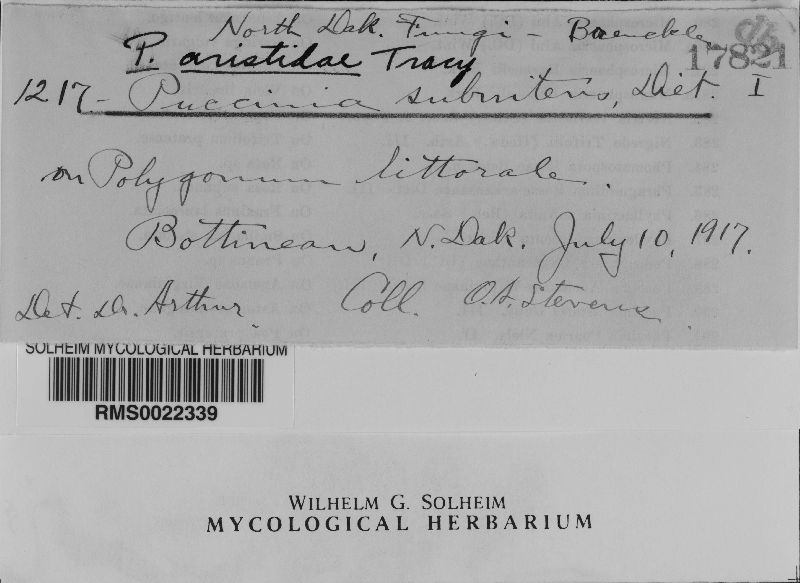 North Dak. Fungi - Brenckle
17821
P. aristidae Tracy
1217 - Puccinia subnitens, Diet. I
on Polygonum littorale.
Bottineau, N. Dak. July 10, 1917.
Det. Dr. Arthur. Coll. O.A. Stevens
SOLHEIM MYCOLOGICAL HERBARIUM
RMS0022339
WILHELM G. SOLHEIM
MYCOLOGICAL HERBARIUM